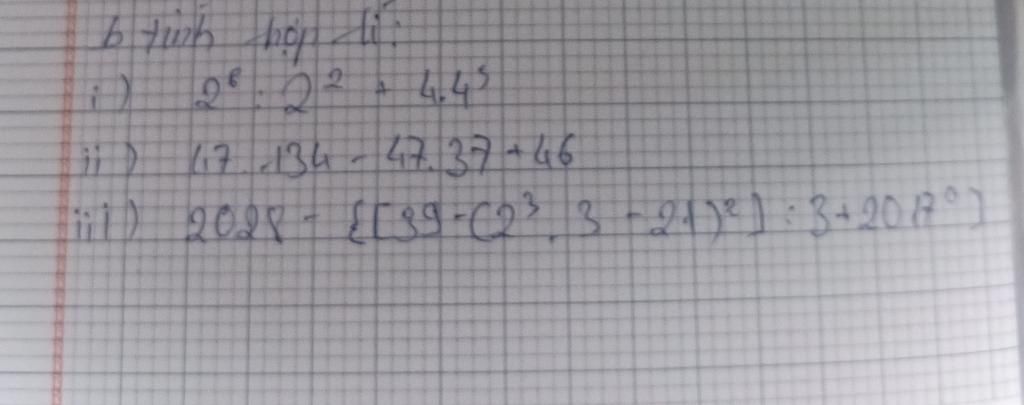 b tính hợp lí:
i) 2⁶ : 2² + 4.4⁵
ii) 47.134 - 47.37 + 46
iii) 2028 - {[39 - (2³.3 - 21)²] : 3 + 2017⁰}